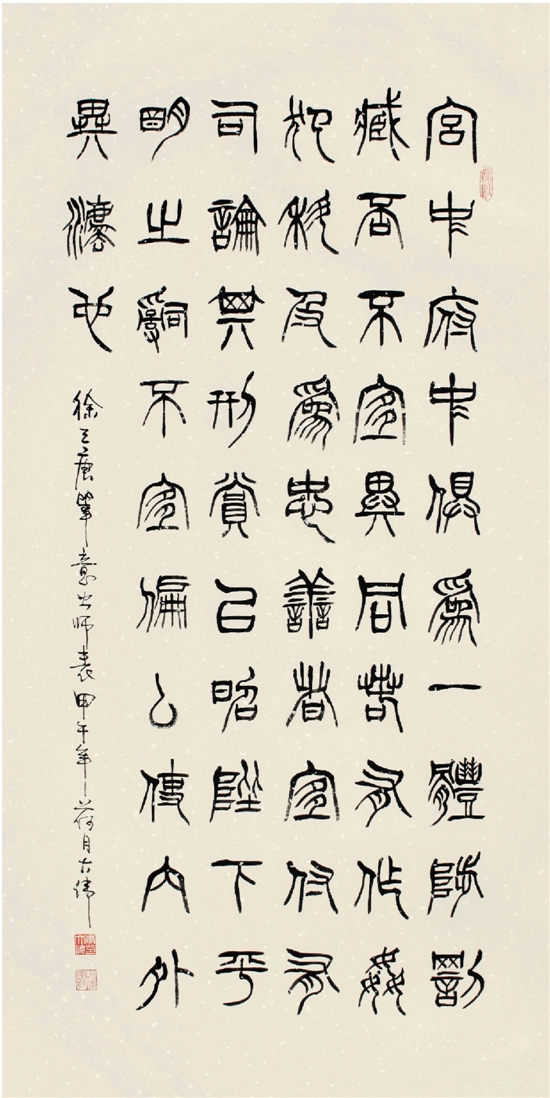 宮中府中俱為一體陟罰
臧否不宜異同若有作姦
犯科及為忠善者宜付有
司論其刑賞以昭陛下平
明之不宜偏厶使內外
異灋也
徐三庚筆意出師表甲午年荷月偉